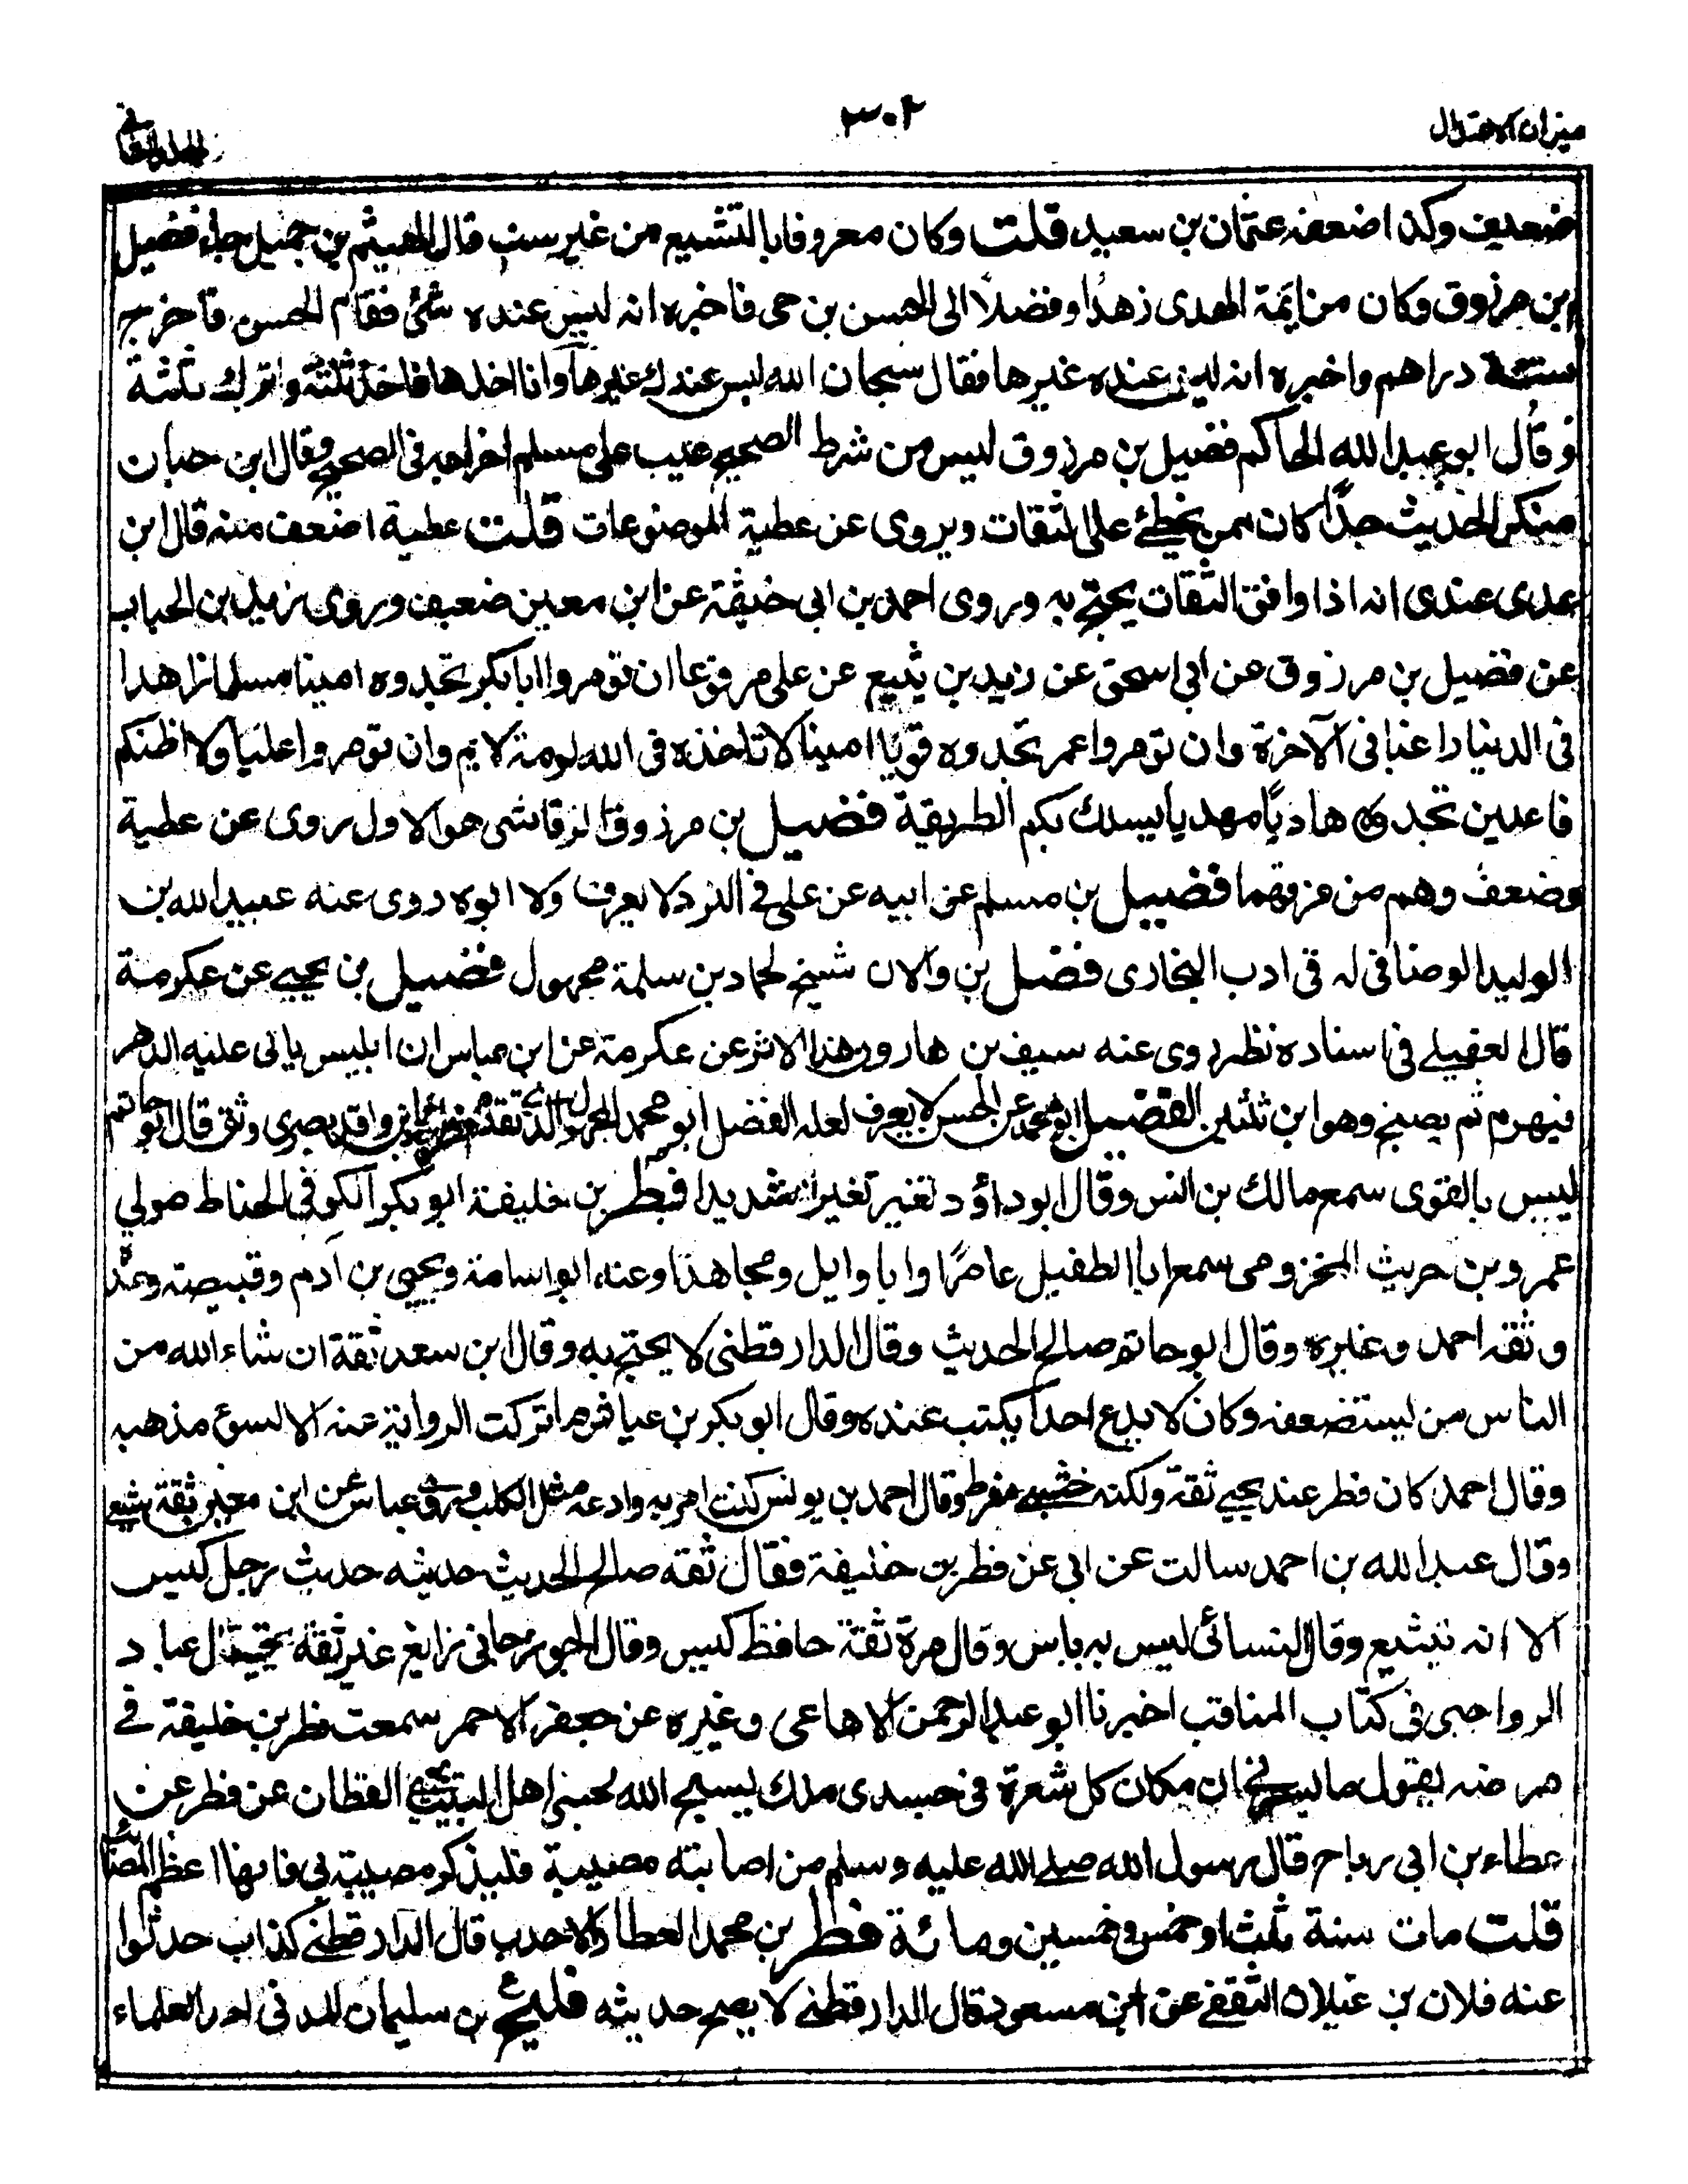 ميزان الاعتدال
٣٠٢
المجلد الثاني
ضعيف وكذا ضعفه عثمان بن سعيد قلت وكان معروفا بالتشيع من غير سب قال الهيثم بن جميل جاء فضيل
بن مرزوق وكان من ايمة الهدى زهدا وفضلا الى الحسن بن حى فاخبره انه ليس عنده شئ فقام الحسن فاخرج
ستة دراهم واخبره انه ليس عنده غيرها فقال سبحان الله ليس عندك غيرها وانا اخذها فاخذ ثلثة وترك ثلثة
وقال ابو عبد الله الحاكم فضيل بن مرزوق ليس من شرط الصحيح عيب على مسلم اخراجه فى الصحيح وقال ابن حبان
منكر الحديث جدًّا كان ممن يخطئ على الثقات ويروى عن عطية الموضوعات قلت عطية اضعف منه قال ابن
عدى عندى انه اذا وافق الثقات يحتج به وروى احمد بن ابى خيثمة عن ابن معين ضعيف وروى زيد بن الحباب
عن فضيل بن مرزوق عن ابى اسحق عن زيد بن يثيع عن على مرفوعا ان تومروا ابابكر تجدوه امينا مسلما زاهدا
فى الدنيا راغبا فى الآخرة وان تومروا عمر تجدوه قويًا امينا لا تاخذه فى الله لومة لايم وان تومروا عليا ولا اظنكم
فاعلين تجدوه هاديًا مهديا يسلك بكم الطريقة فضيل بن مرزوق الرقاشى هو الاول روى عن عطية
وضعف وهم من فرقهما فضيل بن مسلم عن ابيه عن على فى النرد لا يعرف ولا ابوه روى عنه عبيد الله بن
الوليد الوصافى له فى ادب البخارى فضيل بن والان شيخ لحماد بن سلمة مجهول فضيل بن يحيى عن عكرمة
قال العقيلى فى اسناده نظر روى عنه سيف بن هارون هذا الاثر عن عكرمة عن ابن عباس ان ابليس ياتى عليه الدهر
فيهرم ثم يصبح وهو ابن ثلثين الفضيل ابو محمد عن الحسن لا يعرف لعله الفضل ابو محمد الذى تقدم بن واقد بصرى وثق قال ابو حاتم
ليس بالقوى سمع مالك بن انس وقال ابو داؤد تغير تغيرا شديدا فطر بن خليفة ابو بكر الكوفى الحناط مولى
عمرو بن حريث المخزومى سمع ابا الطفيل عامرًا وابا وايل ومجاهدا وعنه ابو اسامة ويحيى بن آدم وقبيصة وعدة
وثقه احمد وغيره وقال ابو حاتم صالح الحديث وقال الدارقطنى لا يحتج به وقال ابن سعد ثقة ان شاء الله من
الناس من يستضعفه وكان لا يدع احدا يكتب عنده وقال ابو بكر بن عياش ما تركت الرواية عنه الا لسوء مذهبه
وقال احمد كان فطر عند يحيى ثقة ولكنه خشبى مفرط وقال احمد بن يونس كنت امر به وادعه مثل الكلب وروى عباس عن ابن معين ثقة شيعى
وقال عبد الله بن احمد سالت عن ابى عن فطر بن خليفة فقال ثقه صالح الحديث حديثه حديث رجل كيس
الا انه يتشيع وقال النسائى ليس به باس وقال مرة ثقة حافظ كيس وقال الجوزجانى زايغ غير ثقة قال عباد
الرواجنى فى كتاب المناقب اخبرنا ابو عبد الرحمن الاصباعى وغيره عن جعفر الاحمر سمعت فطر بن خليفة فى
مرضه يقول ما يسرنى ان مكان كل شعرة فى جسدى ملك يسبح الله لحبى اهل البيت القطان عن فطر عن
عطاء بن ابى رباح قال رسول الله صلى الله عليه وسلم من اصابته مصيبة فليذكر مصيبته بى فانها اعظم المصائب
قلت مات سنة ثلث او خمس وخمسين ومائة فطر بن محمد العطار الاحدب قال الدارقطنى كذاب حدثوا
عنه فلان بن غيلان الثقفى عن ابن مسعود قال الدارقطنى لا يصح حديثه فليح بن سليمان المدنى احد العلماء